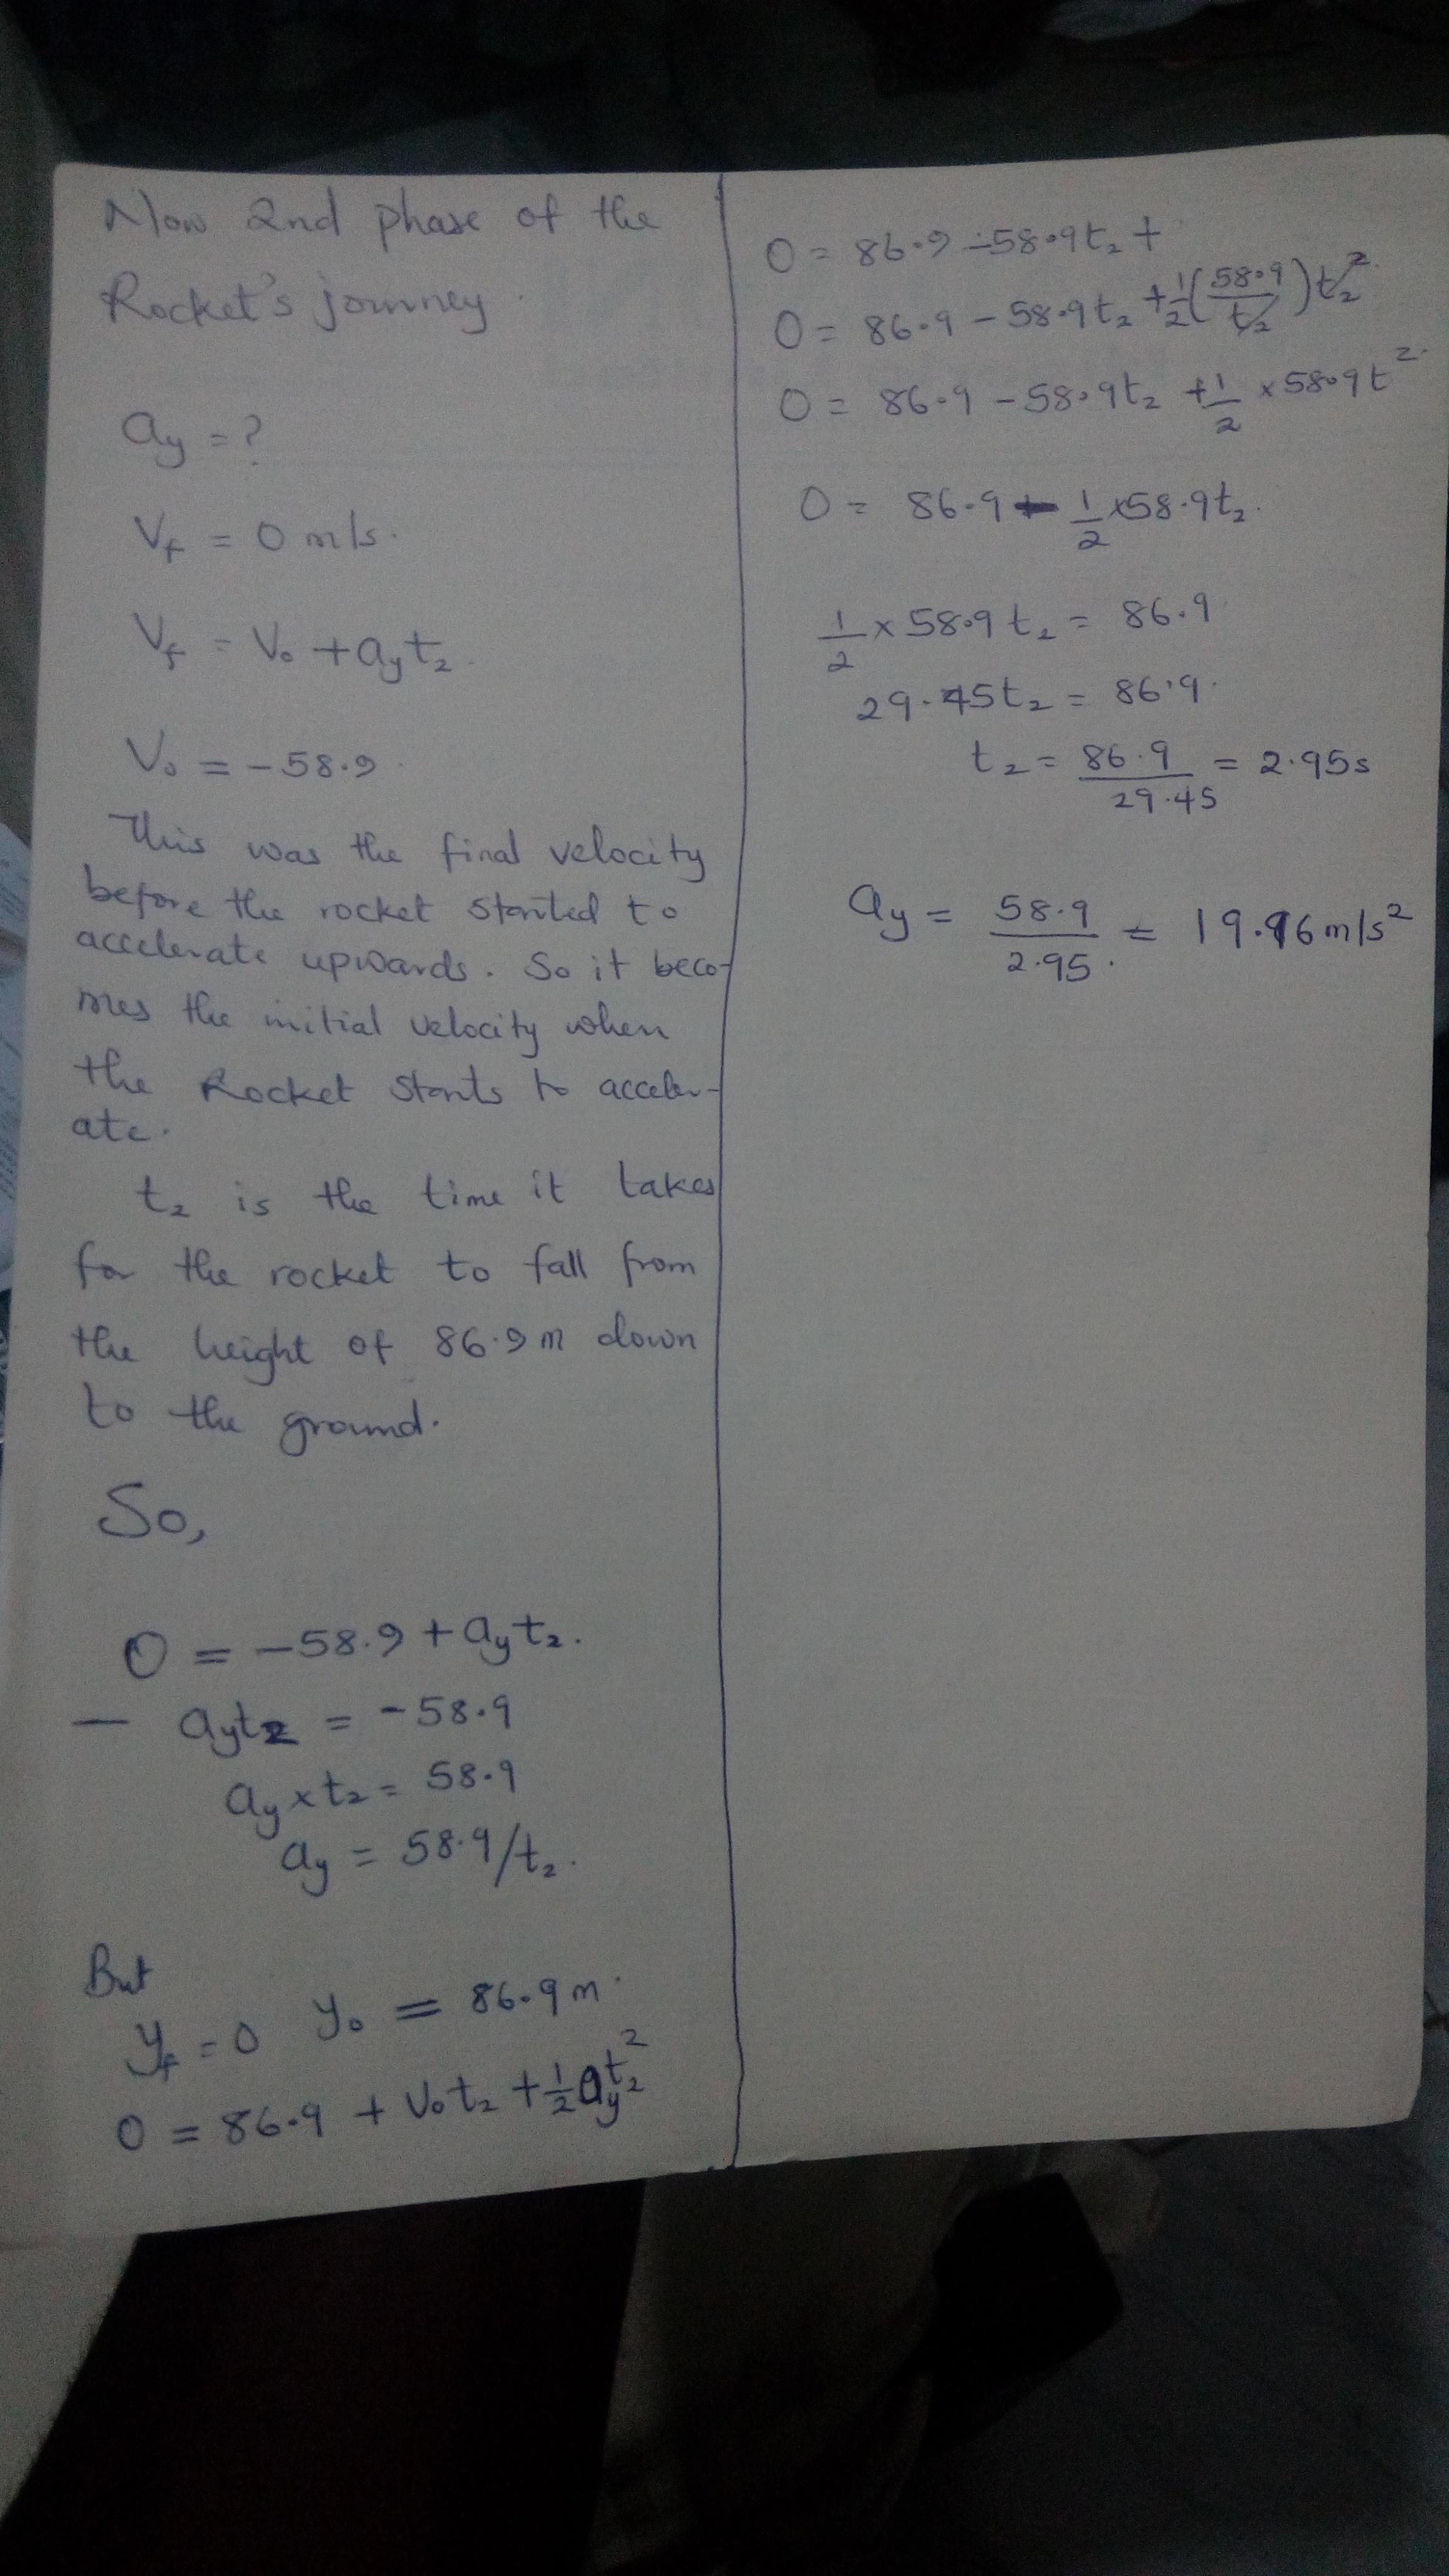 Now 2nd phase of the
Rocket's journey.
ay = ?
Vf = 0 m/s.
Vf = V₀ + ayt₂.
V₀ = -58.9.
This was the final velocity
before the rocket started to
accelerate upwards. So it beco-
mes the initial velocity when
the Rocket starts to acceler-
ate.
t₂ is the time it takes
for the rocket to fall from
the height of 86.9 m down
to the ground.
So,
0 = -58.9 + ayt₂.
- ayt₂ = -58.9
ay × t₂ = 58.9
ay = 58.9/t₂.
But
yf = 0 y₀ = 86.9 m.
0 = 86.9 + V₀t₂ + ½ayt₂²
0 = 86.9 - 58.9t₂ +
0 = 86.9 - 58.9t₂ + ½(58.9/t₂)t₂²
0 = 86.9 - 58.9t₂ + ½ × 58.9t²
0 = 86.9 - ½ × 58.9t₂.
½ × 58.9t₂ = 86.9
29.45t₂ = 86.9.
t₂ = 86.9/29.45 = 2.95s
ay = 58.9/2.95. = 19.96 m/s²